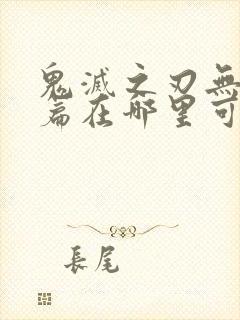 鬼滅之刃無
篇在哪里可
長尾